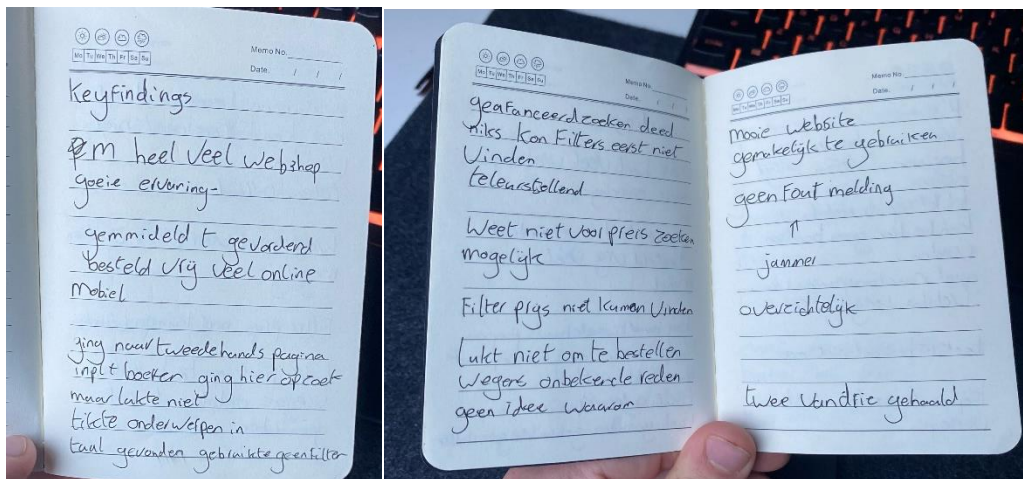 Memo No.
Date. / / /
Mo Tu We Th Fr Sa Su
Keyfindings
m heel veel webshop
goeie ervaring-
gemmideld t gevorderd
besteld vrij veel online
Mobiel
ging naar tweedehands pagina
inplt boeken ging hier op zoek
maar lukte niet
tikte onderwerpen in
taal gevonden gebruikte geen filter
Memo No.
Date. / / /
Mo Tu We Th Fr Sa Su
geafanceerd zoeken deed
niks kon Filters eerst niet
Vinden
teleurstellend
Weet niet voor preis zoeken
mogelijk
Filter prys niet kunnen Vinden
Lukt niet om te bestellen
wegens onbekende reden
geen idee waarom
Memo No.
Date. / / /
Mo Tu We Th Fr Sa Su
mooie website
gemakelijk te gebruiken
geen Fout melding
↑
jammer
overzichtelijk
twee van drie gehaald